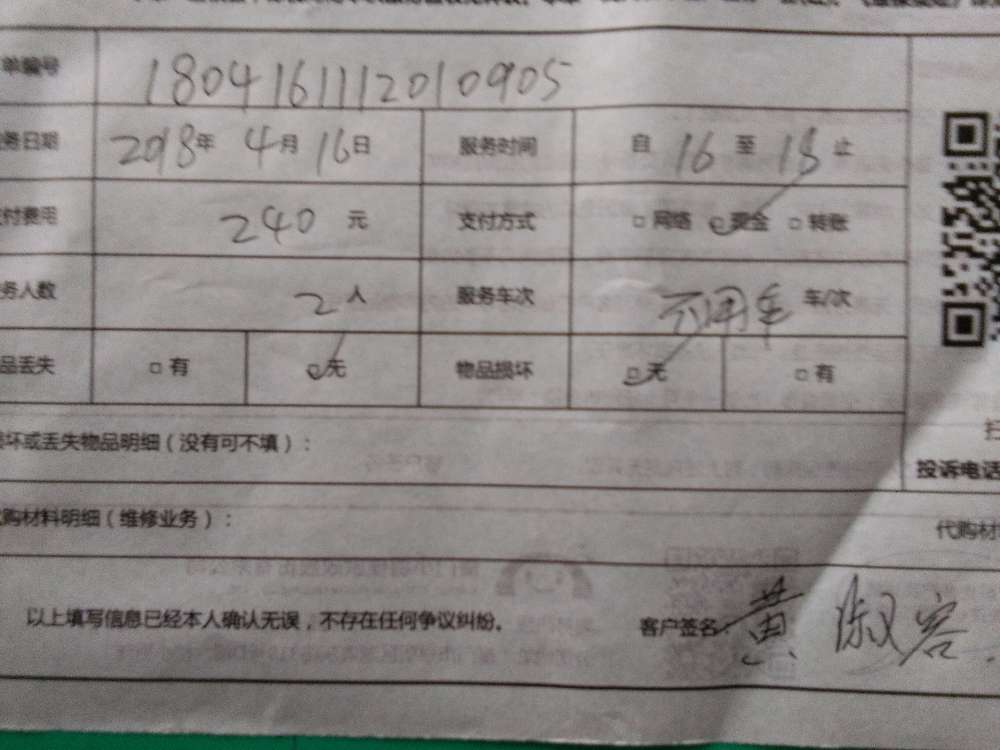 单编号 180416111201 0905
务日期 2018年 4月 16日 服务时间 自 16 至 18 止
付费用 240 元 支付方式 □ 网络 □ 现金 □ 转账
务人数 2 人 服务车次 不用车 车/次
品丢失 □ 有 □ 无 物品损坏 □ 无 □ 有
坏或丢失物品明细（没有可不填）：
扫
投诉电话
购材料明细（维修业务）：
代购材
以上填写信息已经本人确认无误，不存在任何争议纠纷。 客户签名： 黄淑容